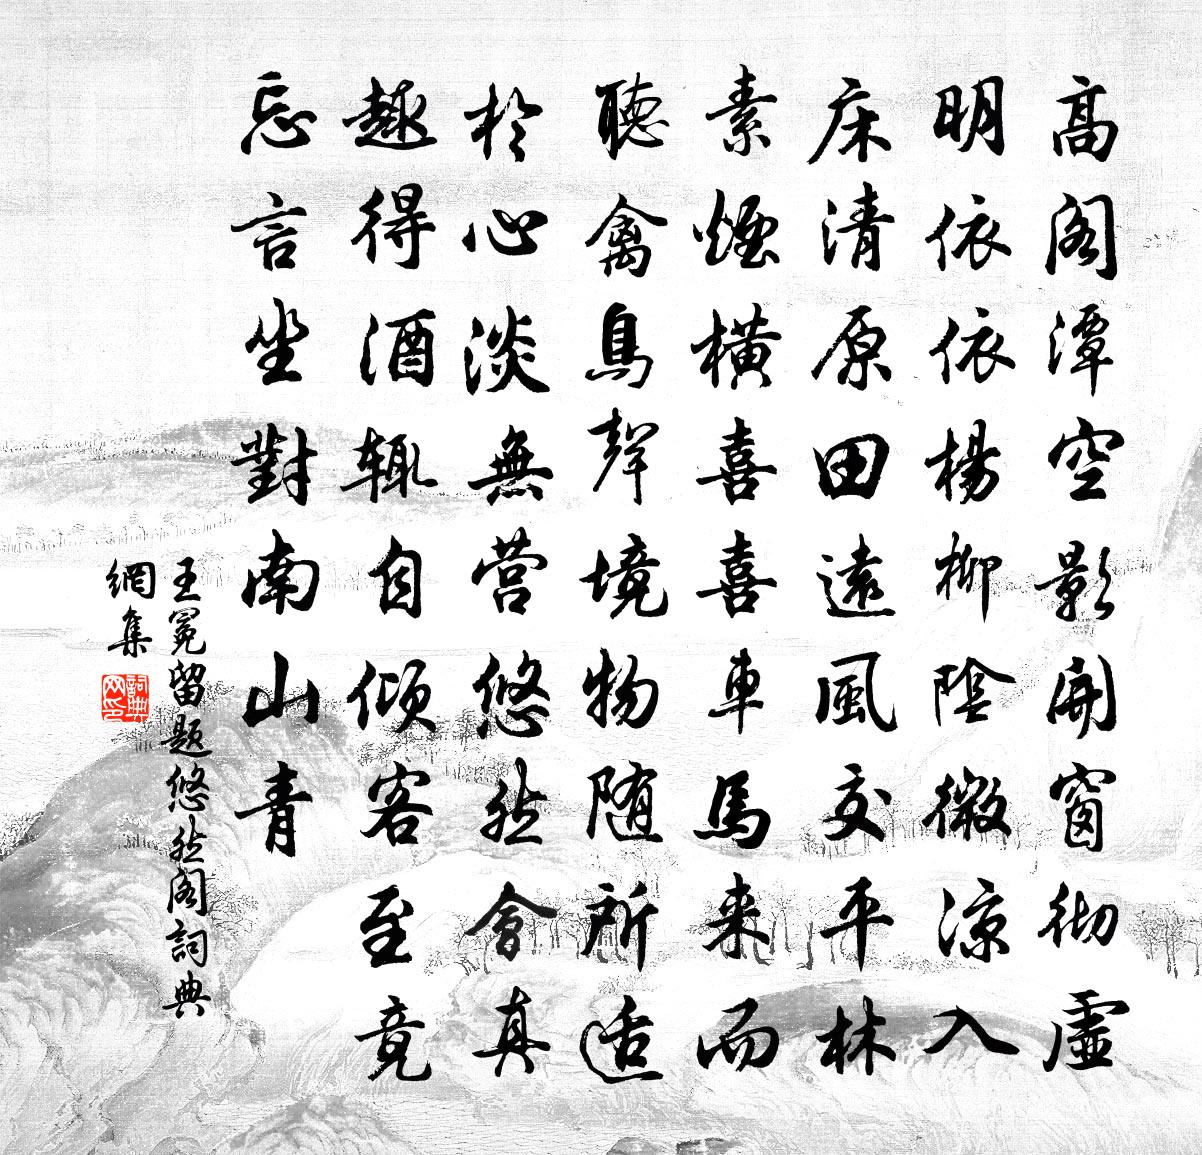 高阁潭空影開窗彻虚
明依依楊柳陰微凉入
床清原田遠風交平林
素煙橫喜喜車馬来而
聽禽鳥聲境物随所适
於心淡無营悠然會真
趣得酒辄自倾客至竟
忘言坐對南山青
王冕留题悠然阁詞典
網集
詞典網印